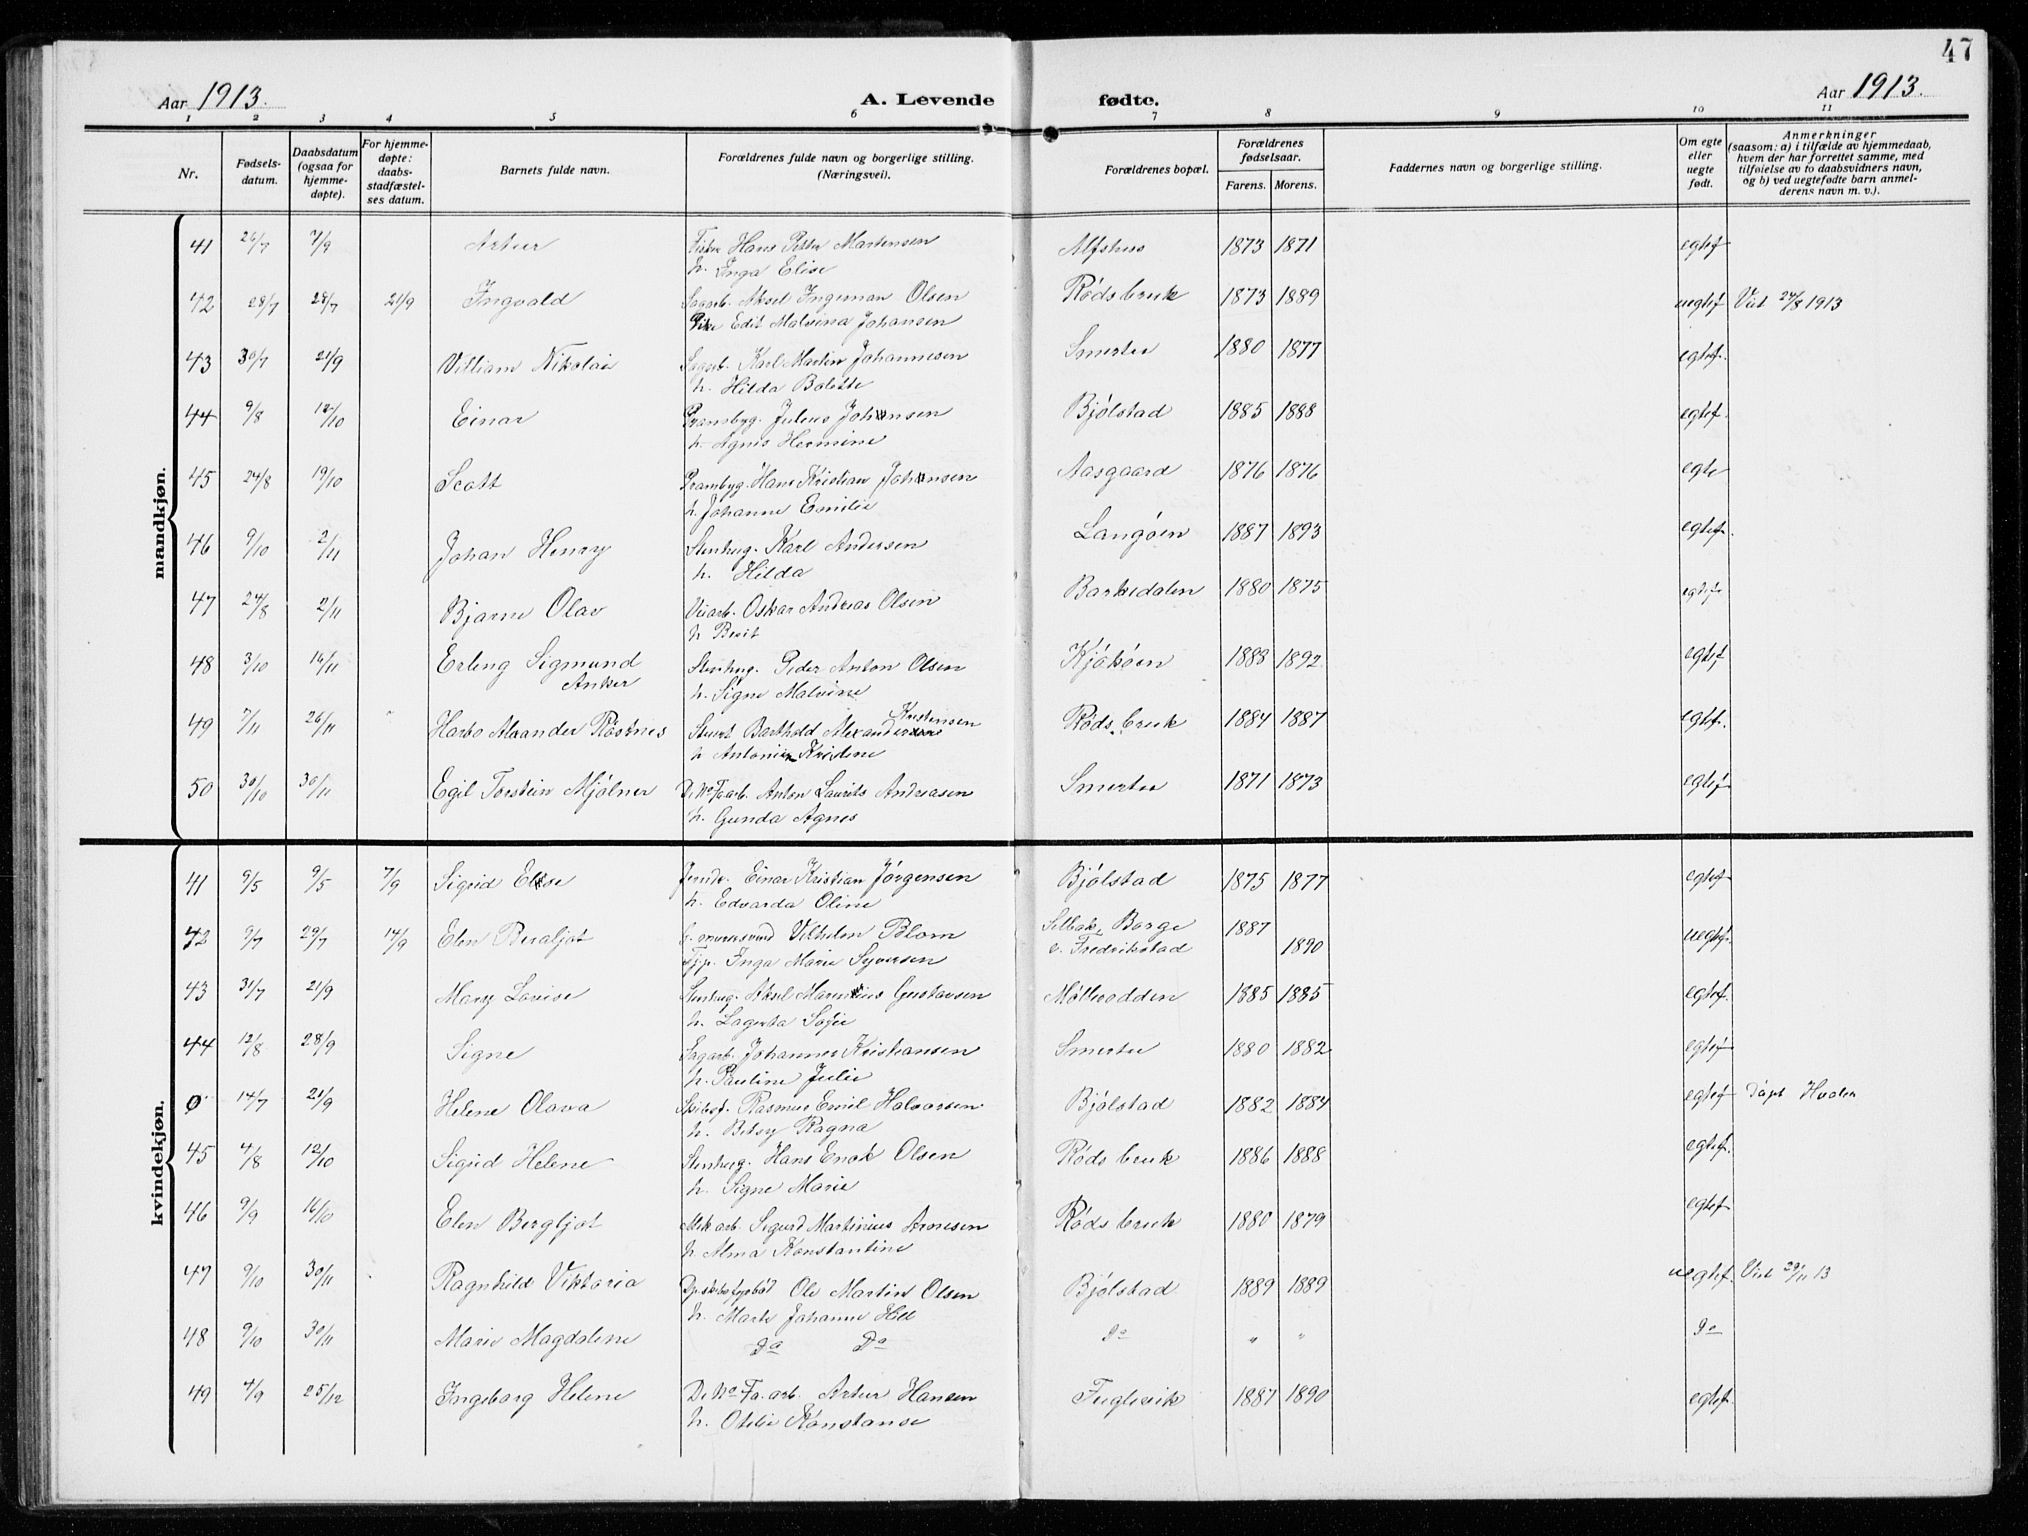 47
Aar 1913. A. Levende fødte. Aar 1913.
1 2 3 4 5 6 7 8 9 10 11
Nr. Fødsels-datum. Daabsdatum (ogsaa for hjemme-døpte). For hjemme-døpte: daabs-stadfæstel-ses datum. Barnets fulde navn. Forældrenes fulde navn og borgerlige stilling. (Næringsvei). Forældrenes bopæl. Forældrenes fødselsaar. Farens. Morens. Faddernes navn og borgerlige stilling. Om egte eller uegte født. Anmerkninger (saasom: a) i tilfælde av hjemmedaab, hvem der har forrettet samme, med tilføielse av to daabsvidners navn, og b) ved uegtefødte barn anmel-derens navn m. v.).
mandkjøn.
41 26/7 7/9 Artur Fisker Hans Petter Martensen Alfshus 1873 1871 egtef
h. Inga Elise
42 28/7 28/7 21/9 Ingvald Sagarb. Aksel Ingeman Olsen Røds bruk 1873 1889 uegtef Vid 24/8 1913
Pike Edit Malvina Johansen
43 30/7 21/9 Villiam Nikolai Sagarb. Karl Martin Johannesen Smertu 1880 1877 egtef.
h. Hilda Bolette
44 9/8 12/10 Einar Prambyg. Julius Johansen Bjølstad 1885 1888 egtef.
h. Agnes Hermine
45 24/8 19/10 Scott Prambyg. Hans Kristian Johansen Aasgaard 1876 1876 egte
h. Johanne Emilie
46 9/10 2/11 Johan Henry Stenhug. Karl Andersen Langøen 1887 1893 egtef.
h. Hilda
47 24/8 2/11 Bjarne Olav Oskar Andreas Olsen Barkedalen 1880 1875 egtef
h Berit
48 3/10 16/11 Erling Sigmund Stenhug. Peder Anton Olsen Kjøkøen 1888 1892 egtef
Anker h. Signe Malvine
49 7/11 26/11 Røsnes Barthold Alexander Kristensen Røds bruk 1884 1887 egtef.
h Antonie Kristine
50 30/10 30/11 Egil Torstein Mjølner De No Fa arb. Anton Laurits Andreasen Smertu 1871 1873 egtef
h. Gunda Agnes
kvindekjøn.
41 9/5 9/5 7/9 Sigrid Elise Einar Kristian Jørgensen Bjølstad 1875 1877 egtef
h. Edvarda Oline
42 9/7 29/7 14/9 Elen Vilhelm Blom Selbak, Borge 1887 uegtef.
Tjp. Inga Marie Syversen e. Fredrikstad 1890
43 31/7 21/9 Mary Lovise Stenhug. Aksel Marentius Gustavsen Mølleodden 1885 1885 egtef.
h. Lagerta Sofie
44 12/8 28/9 Signe Sagarb. Johannes Kristiansen Smertu 1880 1882 egtef
h. Pauline Julie
Ø 14/7 21/9 Helene Olava Skibsf. Rasmus Emil Halvorsen Bjølstad 1882 1884 egtef Døpt Hvaler
h. Betsy Ragna
45 4/8 12/10 Sigrid Helene Stenhug. Hans Enok Olsen Røds bruk 1886 1888 egtef.
h. Signe Marie
46 9/9 16/10 Elen Bergljot Mek arb. Sigurd Martinius Arnesen Røds bruk 1880 1879 egtef
h. Alma Konstantine
47 9/10 30/11 Ragnhild Viktoria Ole Martin Olsen Bjølstad 1889 1889 uegtef. Vid 29/11 13
h. Marte Johanne
48 9/10 30/11 Marie Magdalene Do Do Do " " Do
49 4/9 25/12 Ingeborg Helene De No Fa. arb. Artur Hansen Fuglevik 1887 1890 egtef.
h. Otelie Konstanse